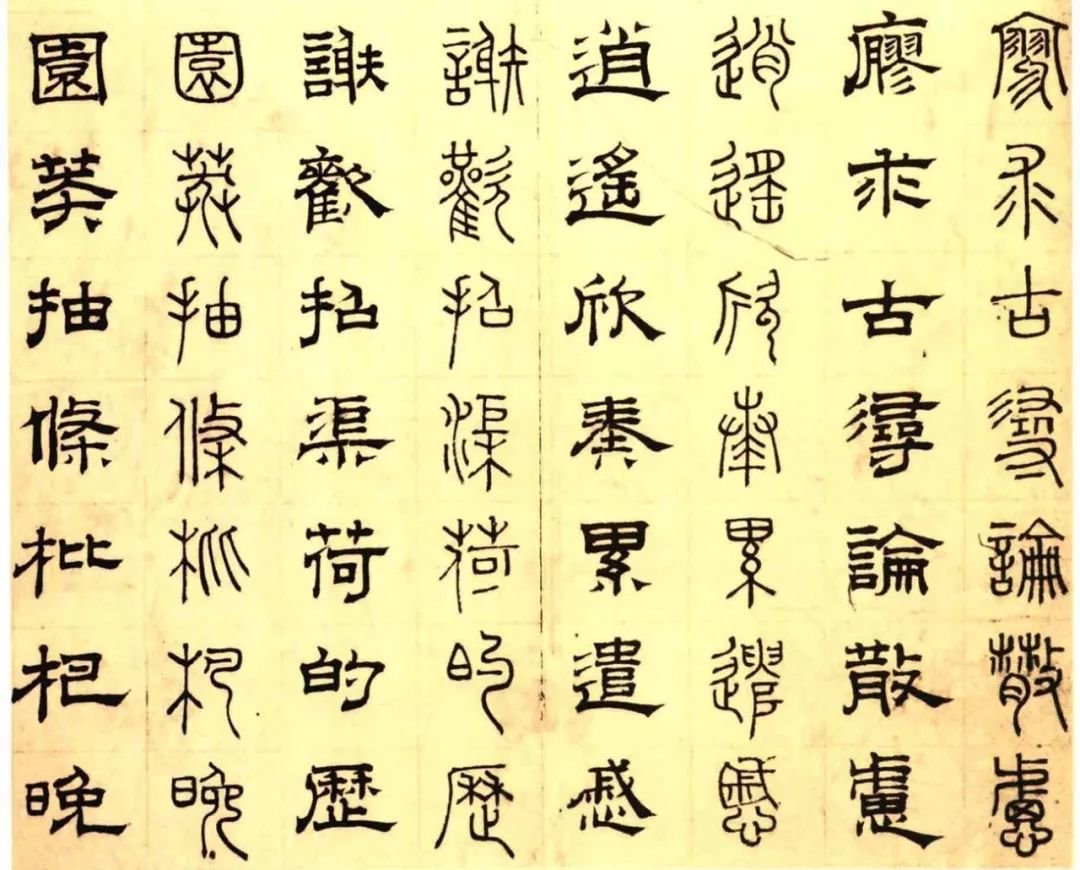 寥求古尋論散慮
廖求古尋論散慮
逍遙欣奏累遣慼
逍遙欣奏累遣慼
謝歡招渠荷的歷
謝歡招渠荷的歷
園莽抽條枇杷晚
園莽抽條枇杷晚